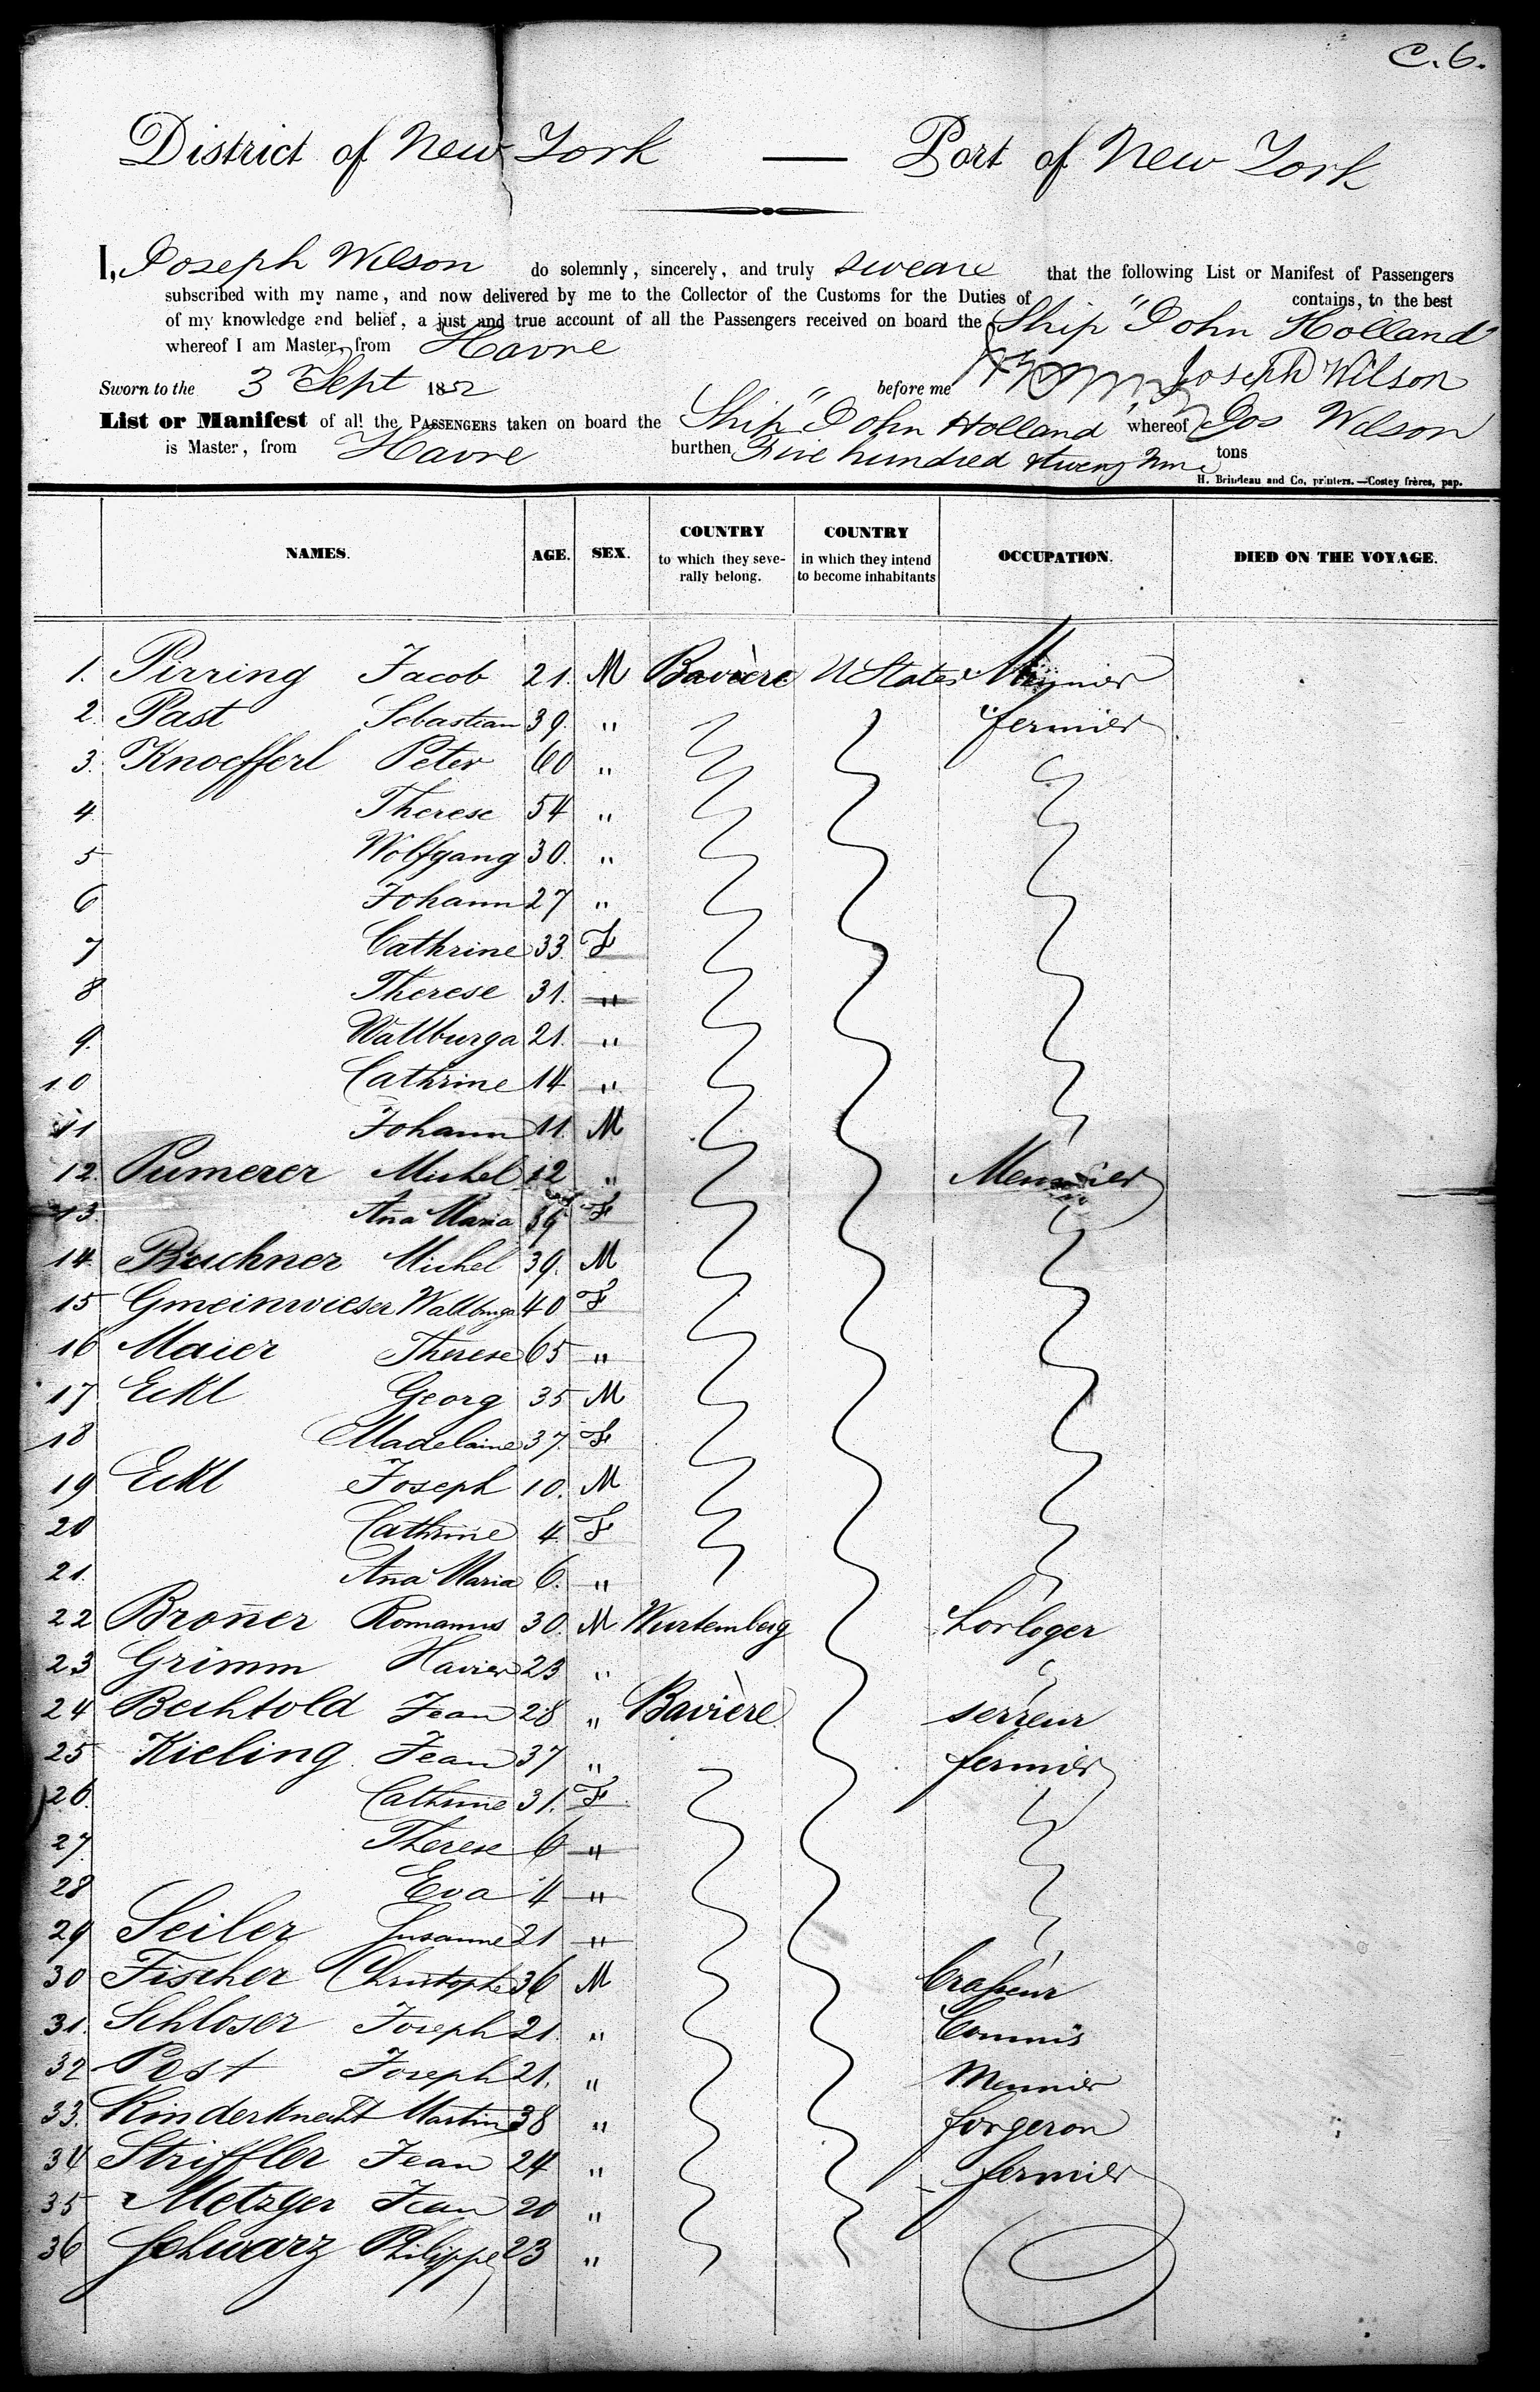 C. 6.
District of New York — Port of New York
I, Joseph Wilson do solemnly, sincerely, and truly sweare that the following List or Manifest of Passengers
subscribed with my name, and now delivered by me to the Collector of the Customs for the Duties of contains, to the best
of my knowledge and belief, a just and true account of all the Passengers received on board the Ship "John Holland"
whereof I am Master, from Havre
Sworn to the 3 Sept 1852 before me Joseph Wilson
List or Manifest of all the PASSENGERS taken on board the Ship "John Holland" whereof Jos Wilson
is Master, from Havre burthen Five hundred & twenty Nine tons
H. Brindeau and Co, printers.—Costey frères, pap.
NAMES. AGE. SEX. COUNTRY to which they severally belong. COUNTRY in which they intend to become inhabitants OCCUPATION. DIED ON THE VOYAGE.
1. Pirring Jacob 21. M Bavière U States
2. Past Sebastian 39. " fermier
3. Knoefferl Peter 60 "
4 Therese 54 "
5 Wolfgang 30. "
6 Johann 27 "
7 Cathrine 33. F
8 Therese 31. "
9. Wallburga 21. "
10 Cathrine 14 "
11 Johann 11. M
12. Pumerer Michel 12 "
13. Aña Maria 39 F
14. Bruchner Michel 39. M
15 Gmeinwieser Wallburga 40 F
16 Maier Therese 65 "
17 Eckl Georg 35 M
18 Madelaine 37. F
19 Eckl Joseph 10. M
20 Cathrine 4. F
21. Aña Maria 6. "
22 Broñer Romanus 30. M Wurtemberg horloger
23 Grimm Xavier 23 "
24 Bechtold Jean 28 " Bavière serreur
25 Kieling Jean 37 " fermier
26. Cathrine 31. F
27. Therese 6 "
28 Eva 4 "
29 Seiler Susanne 21 "
30 Fischer Christophe 36 M
31. Schloser Joseph 21. " Commis
32 Post Joseph 21. " Meunier
33. Kinderknecht Martin 38 " forgeron
34 Striffler Jean 24 " fermier
35 Metzger Jean 20 "
36 Schwarz Philippe 23 "